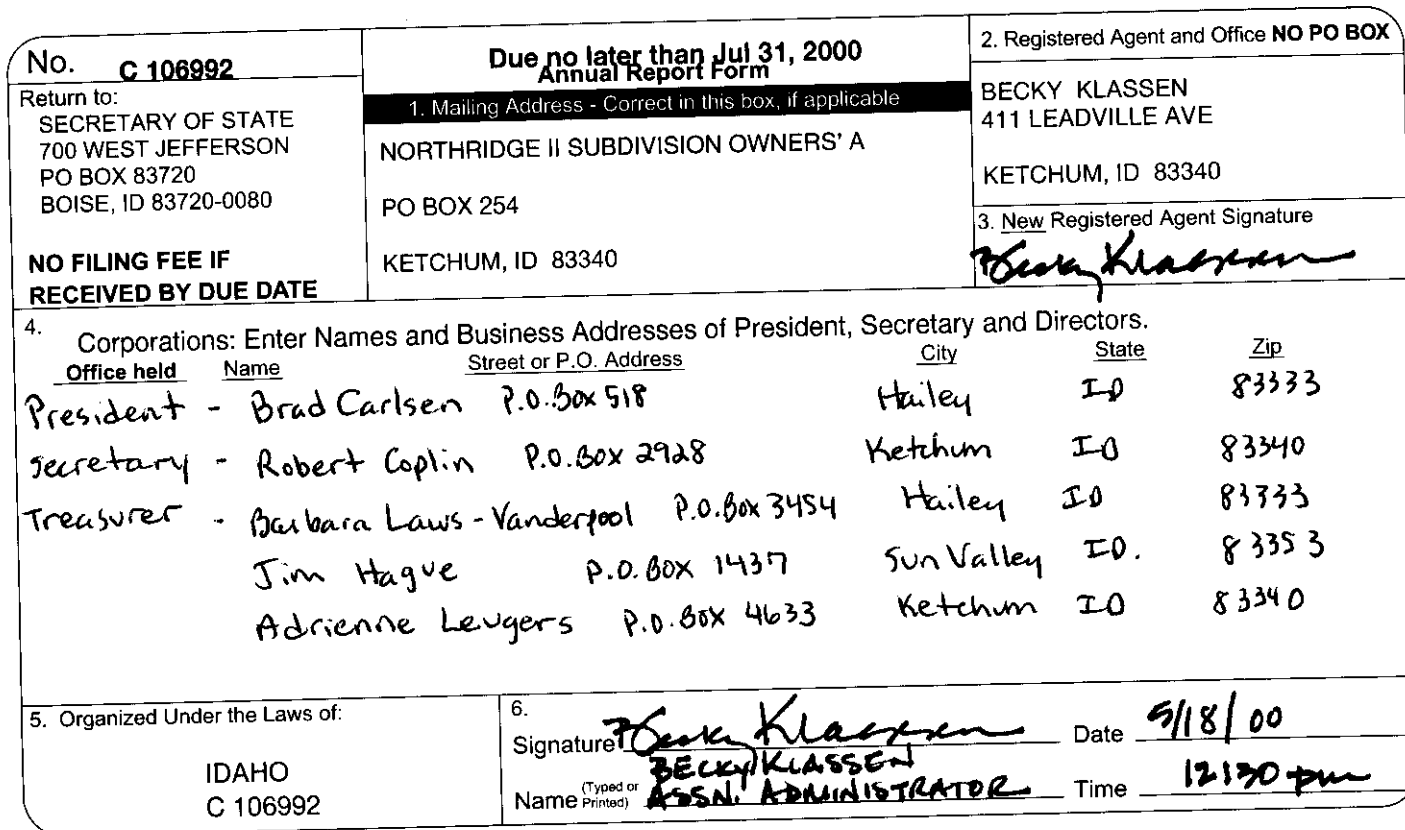 No. C 106992
Return to:
SECRETARY OF STATE
700 WEST JEFFERSON
PO BOX 83720
BOISE, ID 83720-0080
NO FILING FEE IF
RECEIVED BY DUE DATE
Due no later than Jul 31, 2000
Annual Report Form
1. Mailing Address - Correct in this box, if applicable
NORTHRIDGE II SUBDIVISION OWNERS' A
PO BOX 254
KETCHUM, ID 83340
2. Registered Agent and Office NO PO BOX
BECKY KLASSEN
411 LEADVILLE AVE
KETCHUM, ID 83340
3. New Registered Agent Signature
Becky Klassen
4. Corporations: Enter Names and Business Addresses of President, Secretary and Directors.
Office held Name Street or P.O. Address City State Zip
President - Brad Carlsen P.O. Box 518 Hailey ID 83333
Secretary - Robert Coplin P.O. Box 2928 Ketchum ID 83340
Treasurer - Barbara Laws-Vanderpool P.O. Box 3454 Hailey ID 83333
Jim Hague P.O. Box 1437 Sun Valley ID. 83353
Adrienne Leugers P.O. Box 4633 Ketchum ID 83340
5. Organized Under the Laws of:
IDAHO
C 106992
6.
Signature Becky Klassen Date 5/18/00
BECKY KLASSEN
Name (Typed or Printed) ASSN. ADMINISTRATOR Time 12:30 pm